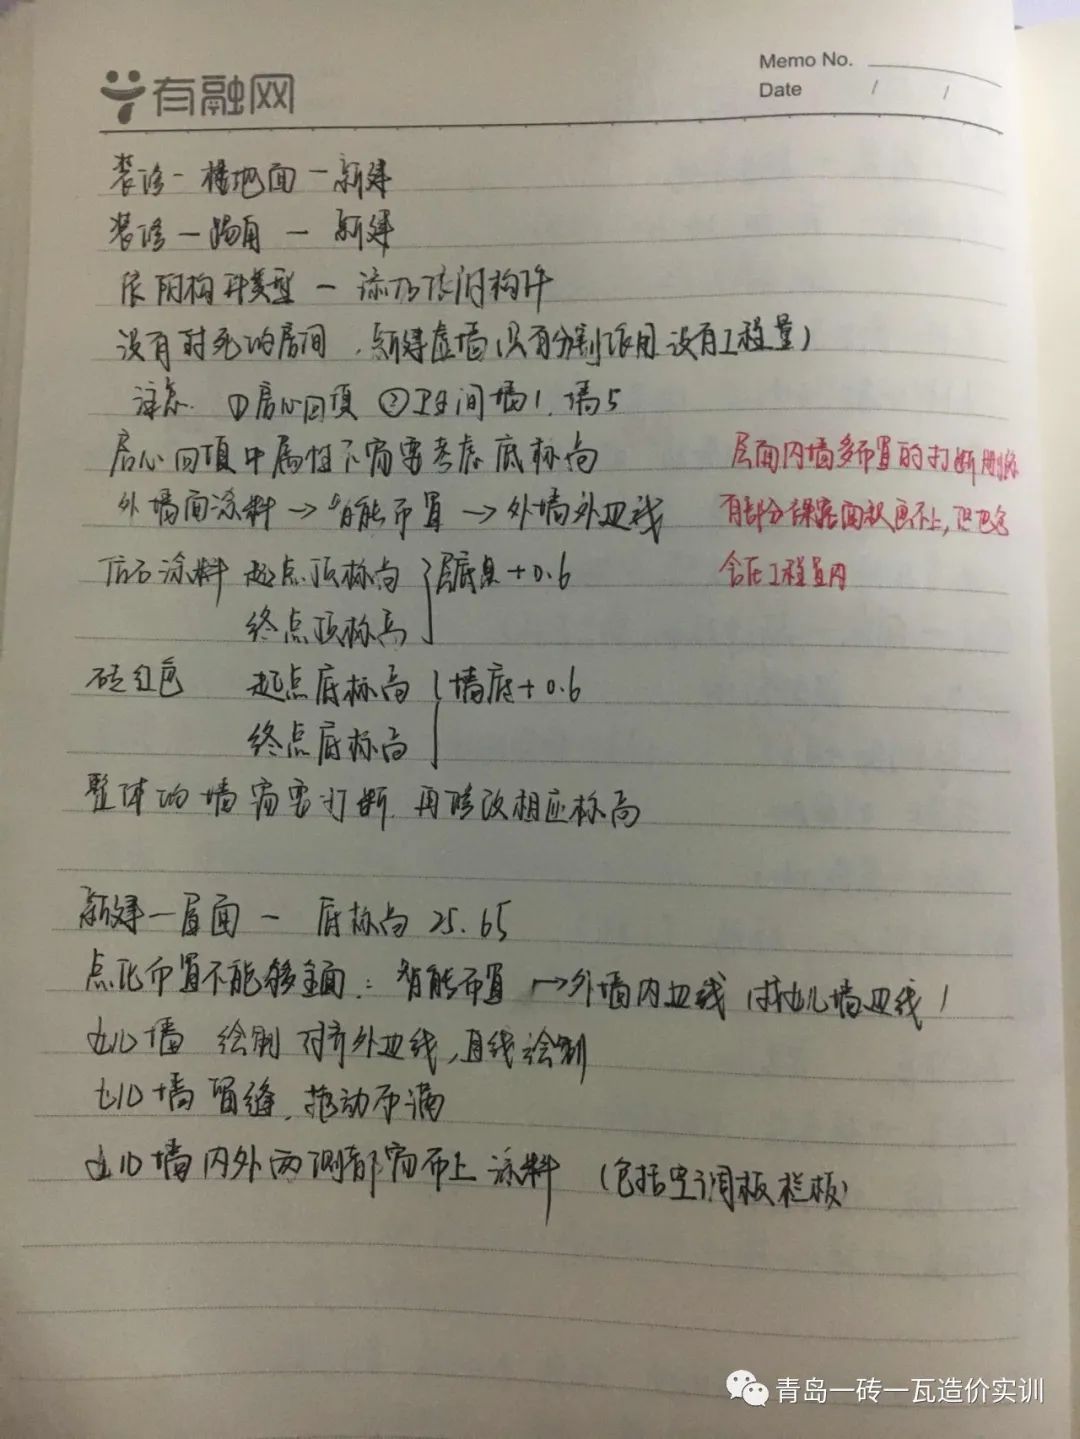 有融网
Memo No.
Date / /
装修-楼地面-新建
装修-踢脚-新建
依附构件类型-添加依附构件
没有封死的房间,新建虚墙(只有分割作用没有工程量)
注意. ①房心回填 ②卫生间墙1.墙5
房心回填中属性不需要考虑底标高
外墙面涂料→智能布置→外墙外边线
仿石涂料 起点顶标高 }层底 +0.6
终点顶标高
砖红色 起点底标高 }墙底+0.6
终点底标高
整体的墙需要打断.再修改相应标高
层面内墙多布置的打断删除
有部分裸露面积画不上,但包
含在工程量内
新建-屋面-底标高25.65
点化布置不能够全面:智能布置→外墙内边线
女儿墙 绘制 对齐外边线,直线绘制
女儿墙留缝.拖动布满
女儿墙内外两侧都需布上涂料 (包括空调板栏板)
青岛一砖一瓦造价实训